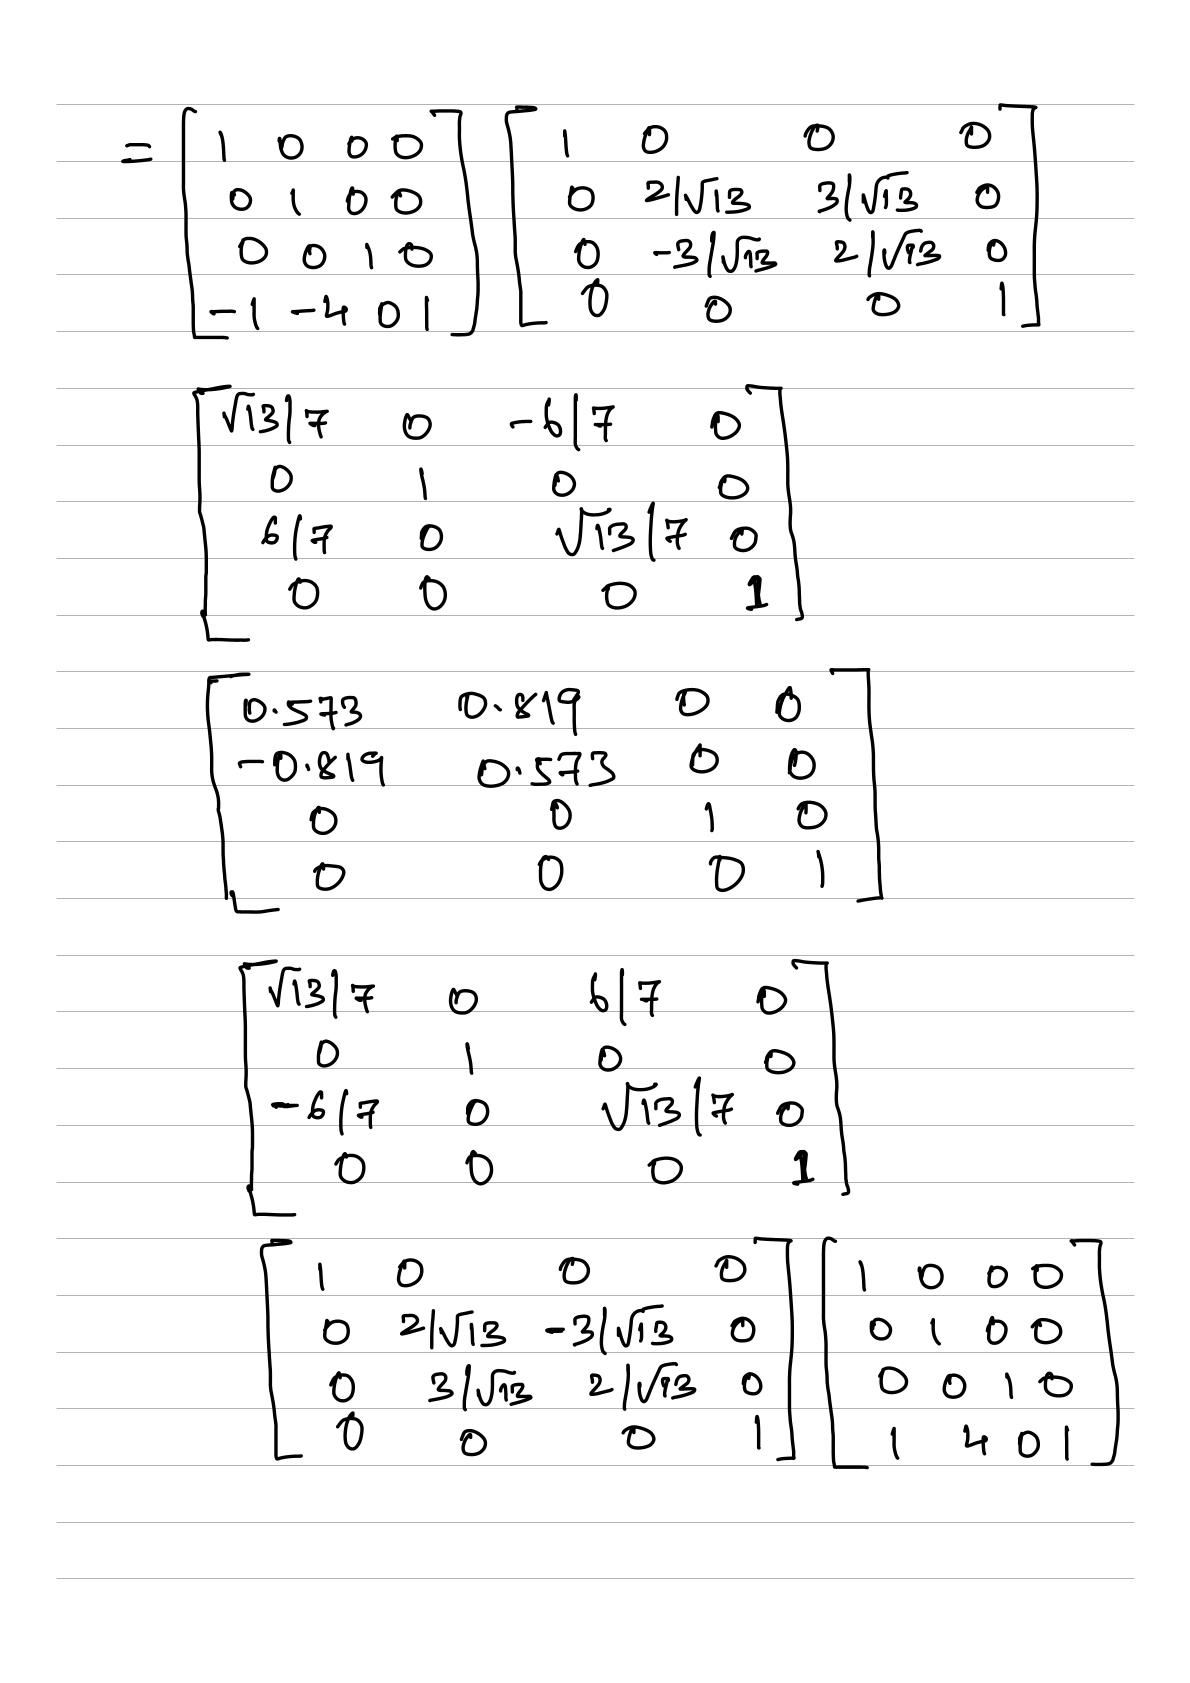 = [ 1 0 0 0 ] [ 1 0 0 0 ]
[ 0 1 0 0 ] [ 0 2/√13 3/√13 0 ]
[ 0 0 1 0 ] [ 0 -3/√13 2/√13 0 ]
[ -1 -4 0 1 ] [ 0 0 0 1 ]
[ √13/7 0 -6/7 0 ]
[ 0 1 0 0 ]
[ 6/7 0 √13/7 0 ]
[ 0 0 0 1 ]
[ 0.573 0.819 0 0 ]
[ -0.819 0.573 0 0 ]
[ 0 0 1 0 ]
[ 0 0 0 1 ]
[ √13/7 0 6/7 0 ]
[ 0 1 0 0 ]
[ -6/7 0 √13/7 0 ]
[ 0 0 0 1 ]
[ 1 0 0 0 ] [ 1 0 0 0 ]
[ 0 2/√13 -3/√13 0 ] [ 0 1 0 0 ]
[ 0 3/√13 2/√13 0 ] [ 0 0 1 0 ]
[ 0 0 0 1 ] [ 1 4 0 1 ]